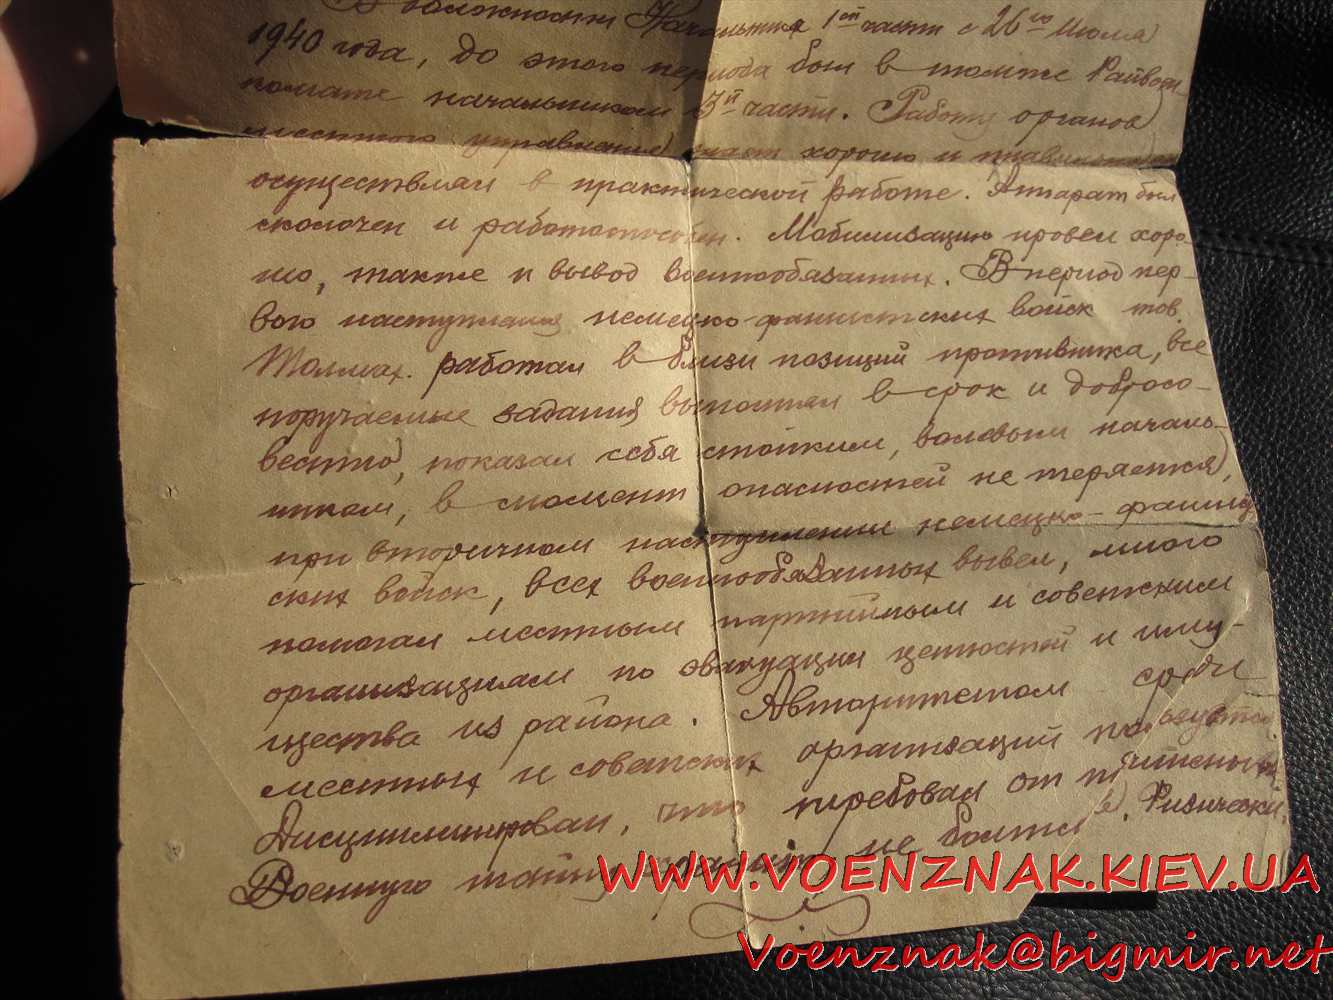 В должности Начальника 1ой части с 26го Июля
1940 года, до этого периода был в том же Райвоен
комате начальником 3й части. Работу органов
местного управления знает хорошо и правильно
осуществлял в практической работе. Аппарат был
сколочен и работоспособен. Мобилизацию провел хоро-
шо, также и вывод военнообязанных. В период пер-
вого наступления немецко-фашистских войск тов.
работал в близи позиций противника, все
поручаемые задания выполнял в срок и добросо-
вестно, показал себя стойким, волевым началь-
ником, в момент опасностей не теряется,
при вторичном наступлении немецко-фашист
ских войск, всех военнообязанных вывел, много
помогал местным партийным и советским
организациям по эвакуации ценностей и иму-
щества из района. Авторитетом среди
местных и советских организаций пользуется
Дисциплинирован, что требовал от подчиненных
Военную тайну хранить не болтлив. Физически
WWW.VOENZNAK.KIEV.UA
Voenznak@bigmir.net